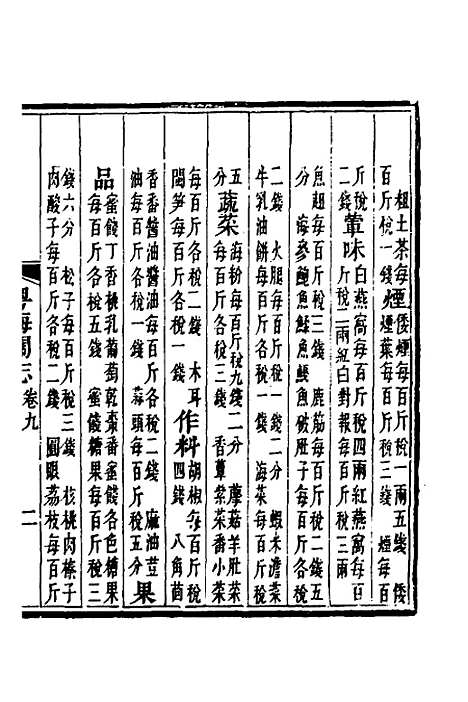 粗土茶每煙倭煙每百斤稅一兩五錢　倭
百斤稅一錢煙葉每百斤稅三錢　煙每百
斤稅葷味白燕窩每百斤稅四兩紅燕窩每百
二錢斤稅二兩紅白對報每百斤稅三兩
魚翅每百斤稅三錢　鹿筋每百斤稅二錢五
分　海參鮑魚鯨魚鱶魚破肚子每百斤各稅
二錢　火腿每百斤稅二錢二分　蝦米澹菜
牛乳油餅每百斤各稅二錢　海菜每百斤稅
五蔬菜　海粉每百斤稅九錢二分　蘑菇羊肚菜
分　香蕈紫菜番小菜
每百斤各稅二錢　木耳作料胡椒每百斤稅
閩笋每百斤各稅一錢四錢　八角茴
香番醬油醬油每百斤各稅二錢　麻油荳
油每百斤各稅一錢　蒜頭每百斤稅五分果
品蜜饌丁香桃乳葡萄乾棗番蜜饌各色糖果
每百斤各稅五錢　蜜饌糖果每百斤稅三
錢六分　松子每百斤稅三錢　核桃肉榛子
肉酸子每百斤各稅二錢　圓眼荔枝每百斤
粵海關志　卷九　二